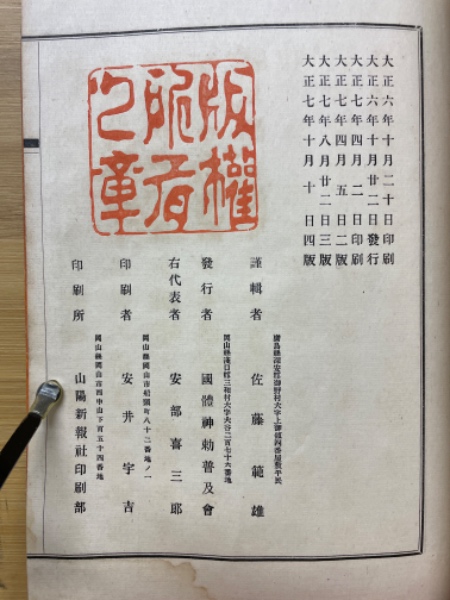 大正六年十月二十日印刷
大正六年十月廿二日發行
大正七年四月二日印刷
大正七年四月五日二版
大正七年八月廿二日三版
大正七年十月十日四版
版權
所有
之章
謹輯者 佐藤範雄
岡山縣淺口郡三和村大字大谷二百七十六番地
發行者 國體神勅普及會
右代表者 安部喜三郎
岡山縣岡山市船頭町八十二番地ノ一
印刷者 安井宇吉
岡山縣岡山市西中山下百五十四番地
印刷所 山陽新報社印刷部